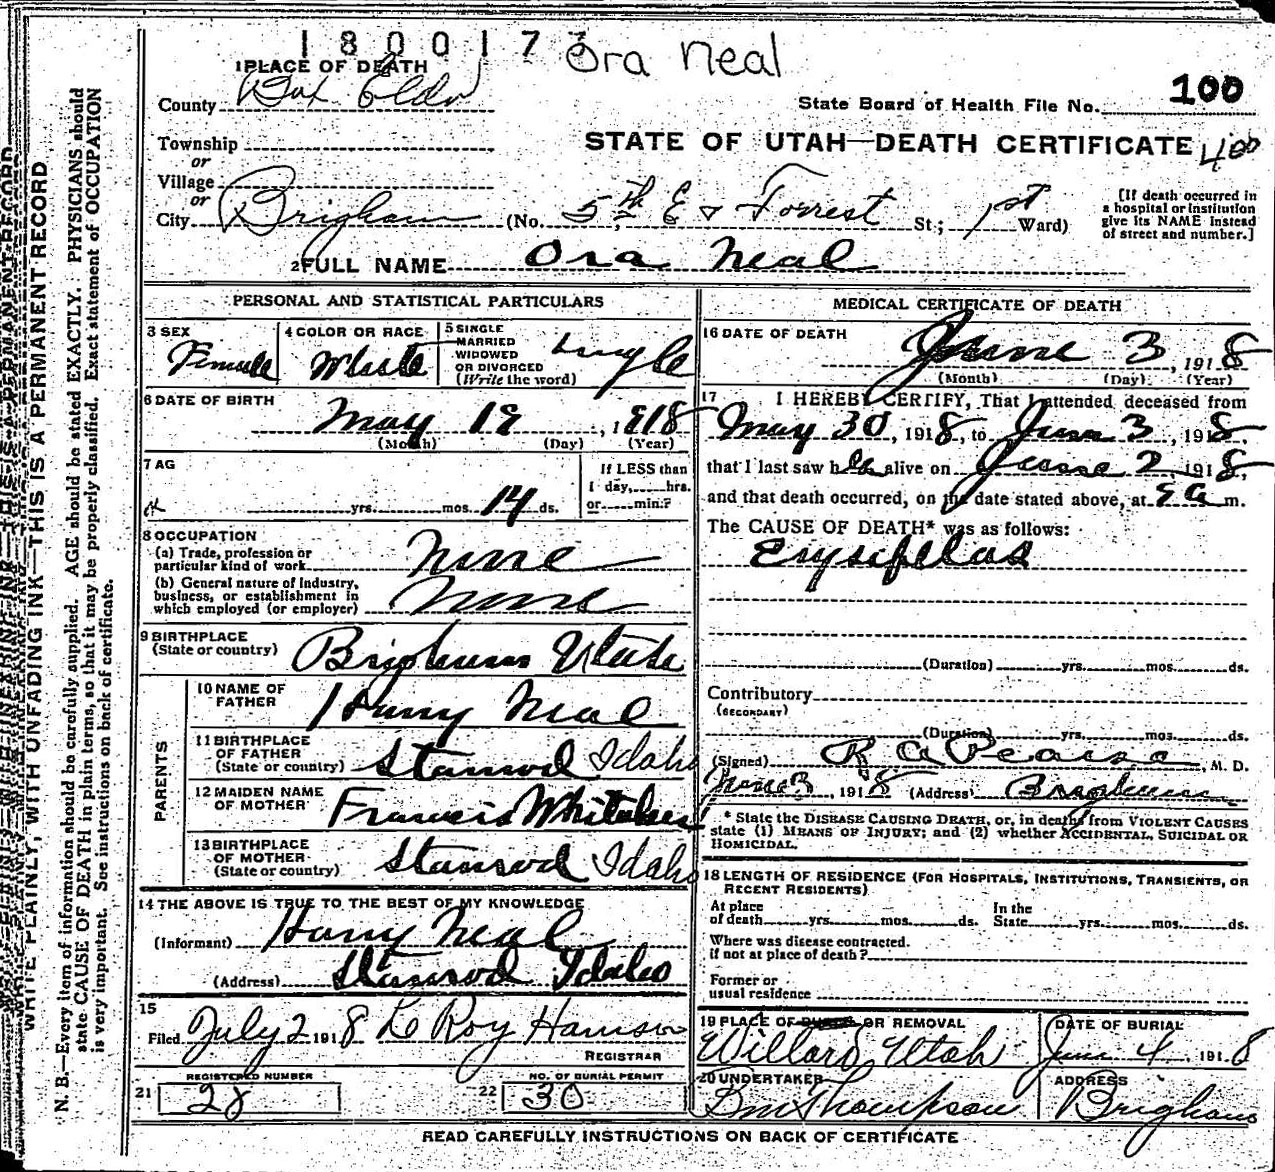 1800173 Ora Neal
1 PLACE OF DEATH
County Box Elder
State Board of Health File No. 100
Township
STATE OF UTAH—DEATH CERTIFICATE 400
or
Village
or
City Brigham (No. 5th E & Forrest St; 1st Ward)
[If death occurred in a hospital or institution give its NAME instead of street and number.]
2 FULL NAME Ora Neal
PERSONAL AND STATISTICAL PARTICULARS
3 SEX Female
4 COLOR OR RACE White
5 SINGLE MARRIED WIDOWED OR DIVORCED (Write the word) Single
6 DATE OF BIRTH
May 19, 1918
(Month) (Day) (Year)
7 AG
yrs. mos. 14 ds.
If LESS than 1 day, hrs. or min.?
8 OCCUPATION
(a) Trade, profession or particular kind of work None
(b) General nature of Industry, business, or establishment in which employed (or employer) None
9 BIRTHPLACE (State or country) Brigham Utah
PARENTS
10 NAME OF FATHER Harry Neal
11 BIRTHPLACE OF FATHER (State or country) Stanrod Idaho
12 MAIDEN NAME OF MOTHER Francis Whitaker
13 BIRTHPLACE OF MOTHER (State or country) Stanrod Idaho
14 THE ABOVE IS TRUE TO THE BEST OF MY KNOWLEDGE
(Informant) Harry Neal
(Address) Stanrod Idaho
15
Filed July 2 1918 Le Roy Harrison
REGISTRAR
21 REGISTERED NUMBER 28
22 NO. OF BURIAL PERMIT 30
MEDICAL CERTIFICATE OF DEATH
16 DATE OF DEATH
June 3, 1918
(Month) (Day) (Year)
17 I HEREBY CERTIFY, That I attended deceased from
May 30, 1918, to June 3, 1918,
that I last saw her alive on June 2, 1918,
and that death occurred, on the date stated above, at m.
The CAUSE OF DEATH* was as follows:
Erysipelas
(Duration) yrs. mos. ds.
Contributory
(SECONDARY)
(Duration) yrs. mos. ds.
(Signed) R A Pearse, M. D.
June 3, 1918 (Address) Brigham
* State the DISEASE CAUSING DEATH, or, in deaths from VIOLENT CAUSES
state (1) MEANS OF INJURY; and (2) whether ACCIDENTAL, SUICIDAL OR
HOMICIDAL.
18 LENGTH OF RESIDENCE (FOR HOSPITALS, INSTITUTIONS, TRANSIENTS, OR
RECENT RESIDENTS)
At place of death yrs. mos. ds. In the State yrs. mos. ds.
Where was disease contracted.
if not at place of death?
Former or
usual residence
19 PLACE OF OR REMOVAL Willard Utah
DATE OF BURIAL June 4, 1918
20 UNDERTAKER Thompson
ADDRESS Brigham
READ CAREFULLY INSTRUCTIONS ON BACK OF CERTIFICATE
WRITE PLAINLY, WITH UNFADING INK—THIS IS A PERMANENT RECORD
N. B.—Every item of information should be carefully supplied. AGE should be stated EXACTLY. PHYSICIANS should
state CAUSE OF DEATH in plain terms, so that it may be properly classified. Exact statement of OCCUPATION
is very important. See instructions on back of certificate.